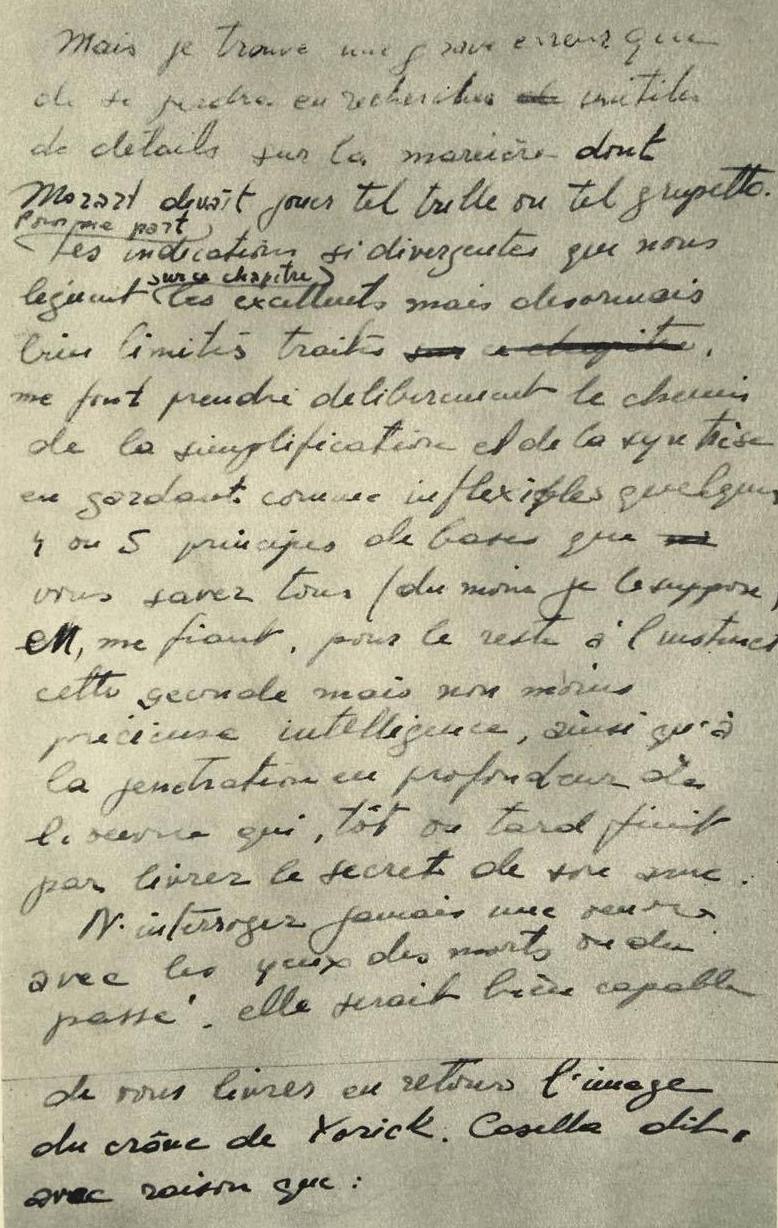 Mais je trouve une grave erreur que
de se perdre en recherches de inutiles
de détails sur la manière dont
Mozart devait jouer tel trille ou tel grupetto.
(Pour ma part)
Les indications si divergentes que nous
(sur ce chapitre)
lèguent les excellents mais désormais
bien limités traités sur ce chapitre,
me font prendre deliberement le chemin
de la simplification et de la synthèse
en gardant comme inflexibles quelques
4 ou 5 principes de bases que
vous savez tous (du moins je le suppose)
en, me fiant, pour le reste à l'instinct
cette seconde mais non moins
précieuse intelligence, ainsi qu'à
la penetration en profondeur de
l'oeuvre qui, tôt ou tard finit
par livrer le secret de son ame.
N'interrogez jamais une oeuvre
avec les yeux des morts ou du
passé. elle serait bien capable
de vous livrer en retour l'image
du crâne de Yorick. Casella dit,
avec raison que :